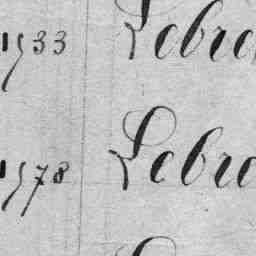 1533 Lebre
1578 Lebre